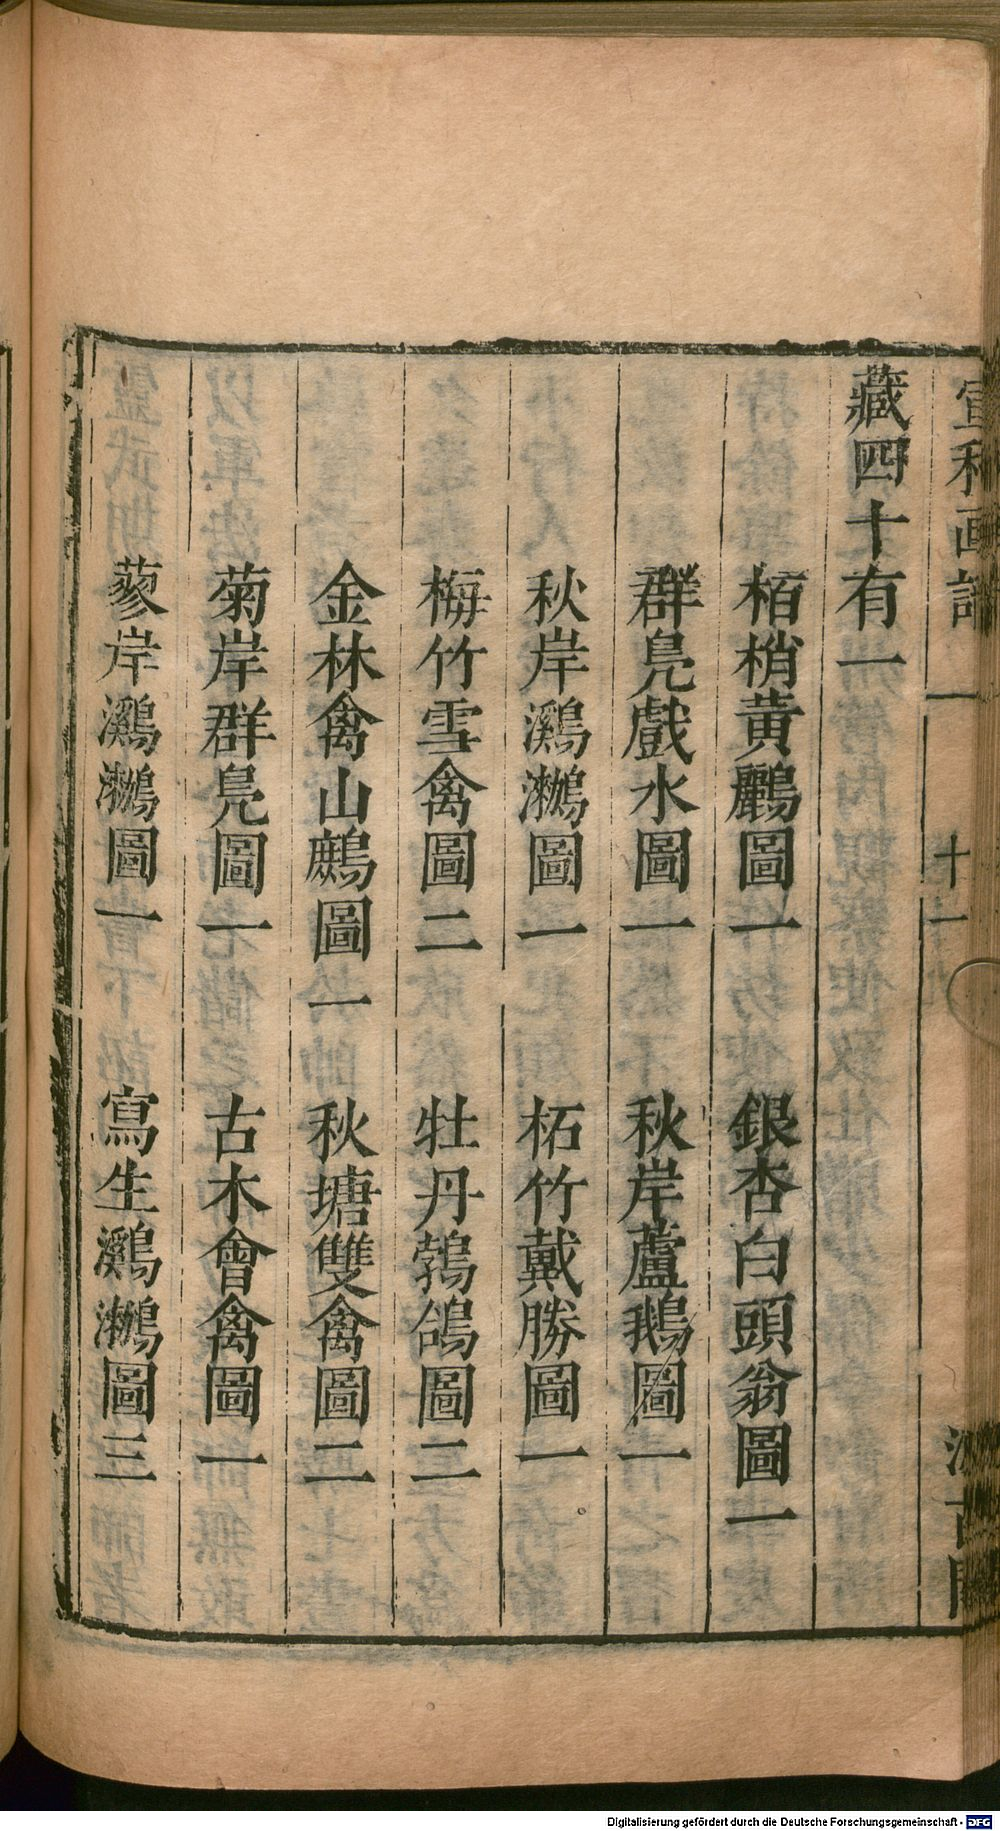 宣和画譜
十一
汲古閣
藏四十有一
栢梢黃鸝圖一　銀杏白頭翁圖一
群鳧戲水圖一　秋岸蘆鵝圖一
秋岸鸂鷘圖一　柘竹戴勝圖一
梅竹雪禽圖二　牡丹鵓鴿圖二
金林禽山鷓圖一　秋塘雙禽圖二
菊岸群鳧圖一　古木會禽圖一
蓼岸鸂鷘圖一　寫生鸂鷘圖三
Digitalisierung gefördert durch die Deutsche Forschungsgemeinschaft - DFG